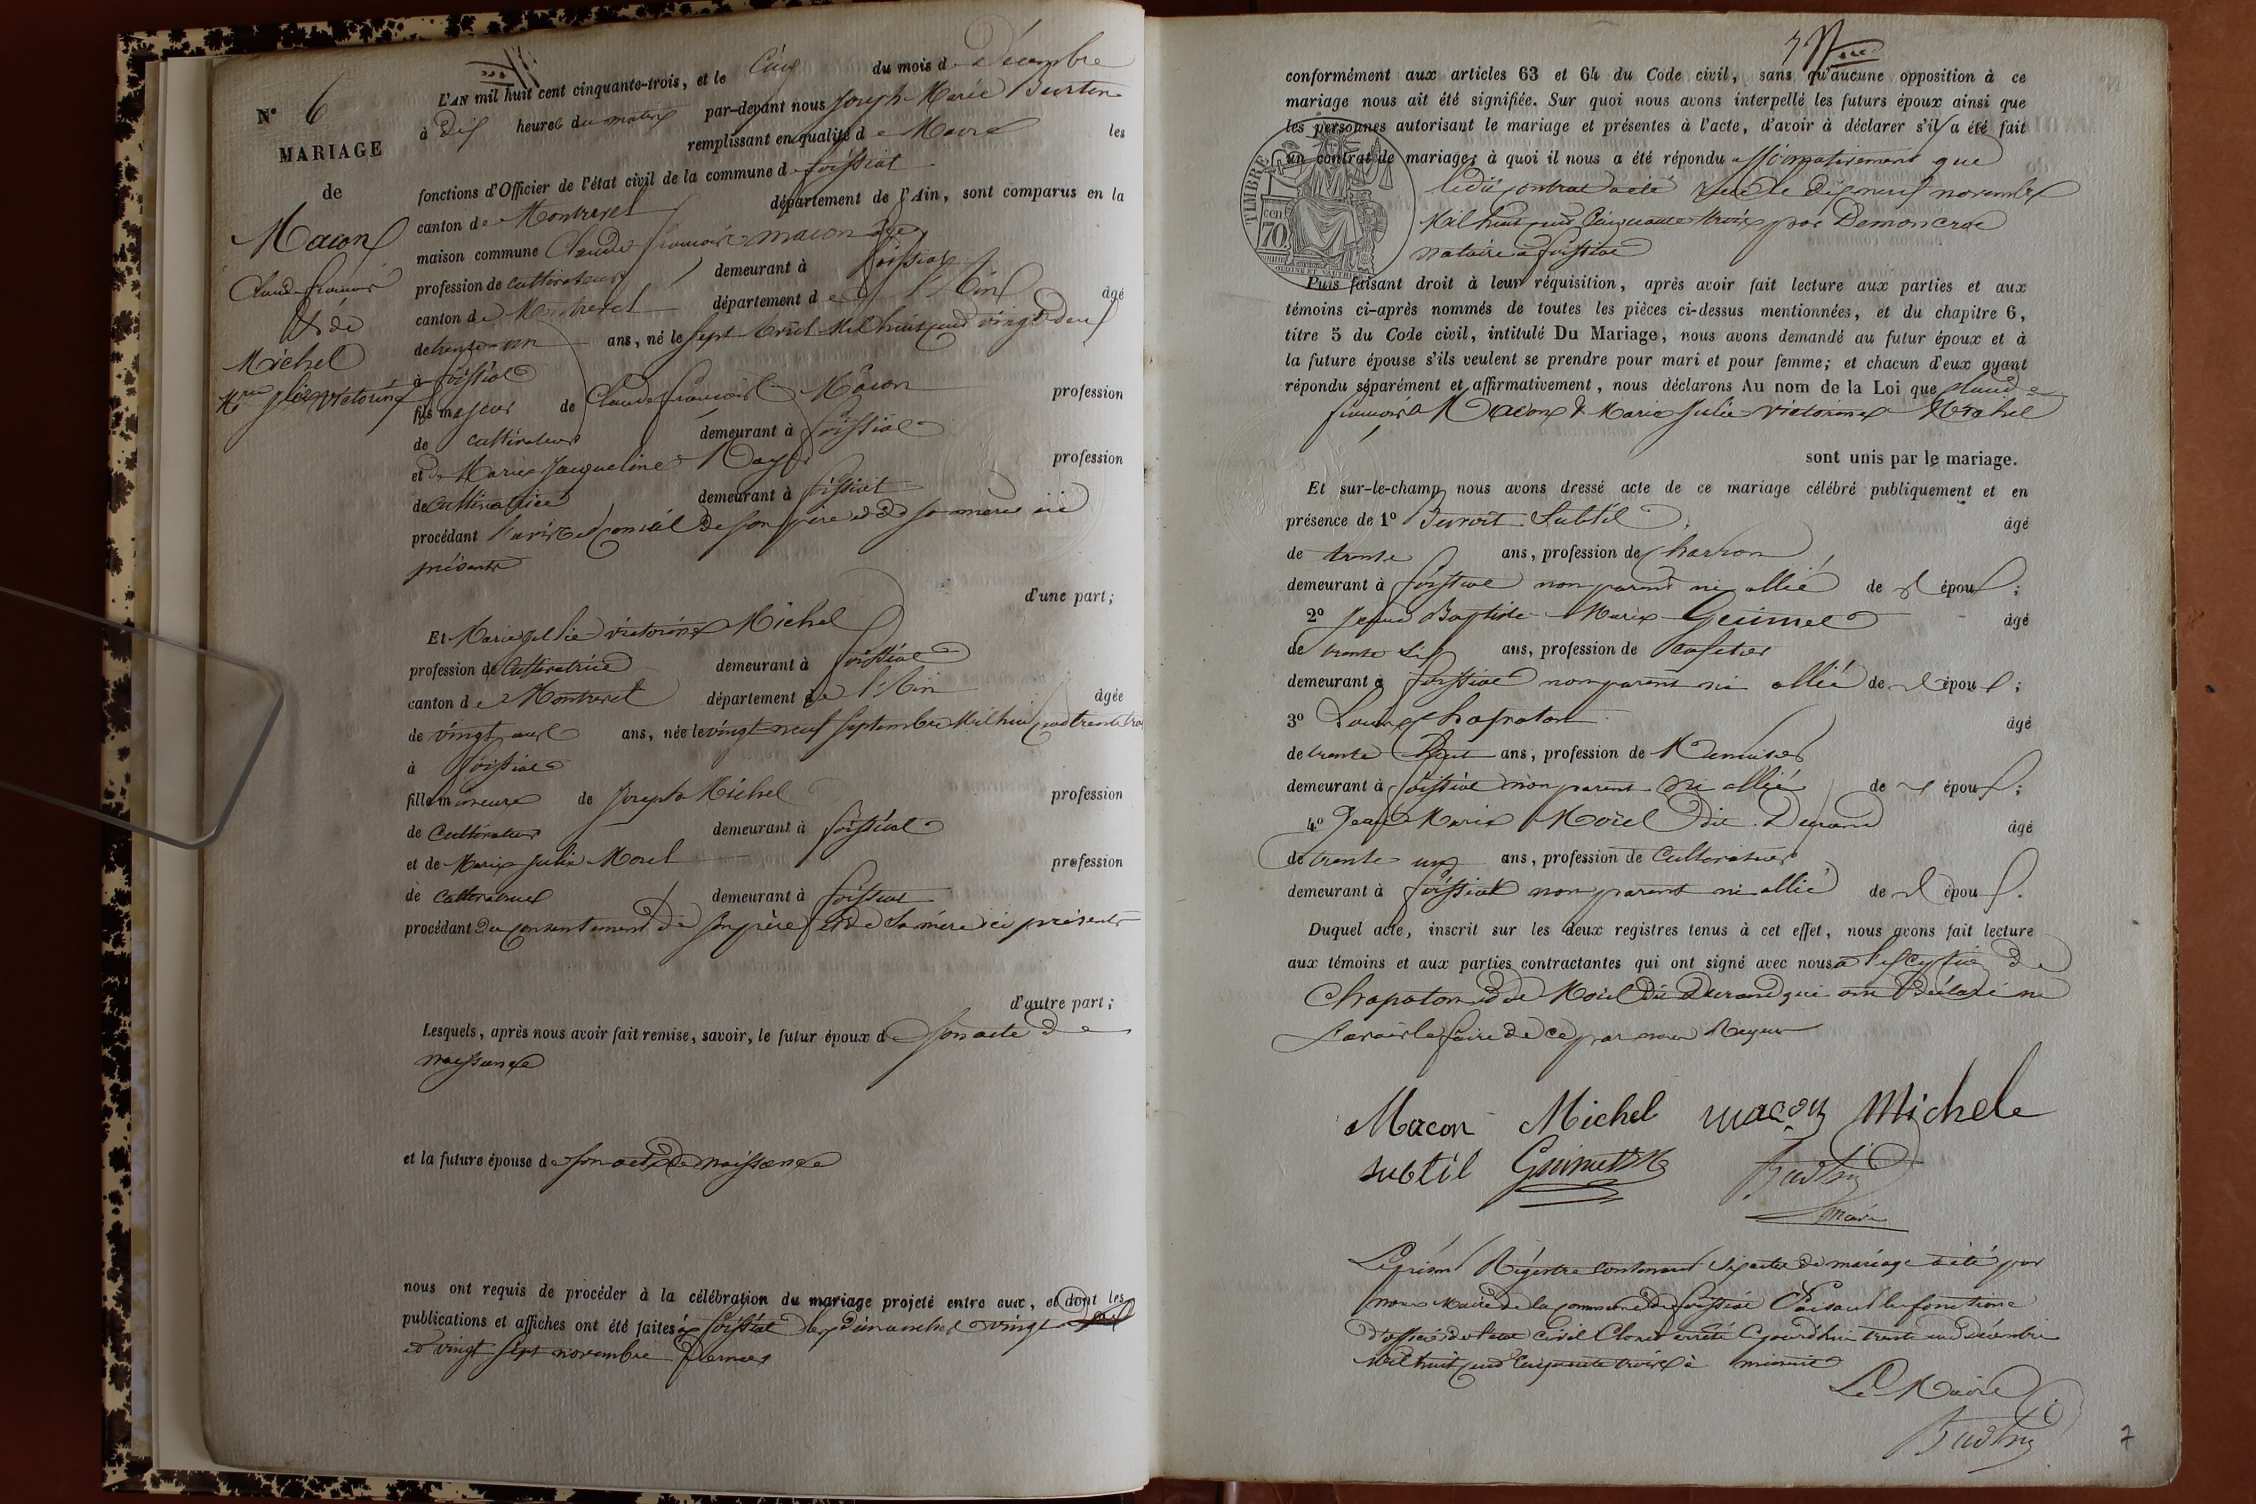 N° 6
MARIAGE
de
Macon
Claude François
Et de
Michel
Mie Julie victorine
L'AN mil huit cent cinquante-trois, et le Cinq du mois de Décembre
à Dix heures du matin par-devant nous Joseph Marie
remplissant en qualité de Maire les
fonctions d'Officier de l'état civil de la commune de foissiat
canton de Montrevel département de l'Ain, sont comparus en la
maison commune Claude françois macon
profession de cultivateur demeurant à foissiat
canton de Montrevel département de l'Ain âgé
de trente un ans, né le sept avril Mil huit cent vingt deux
à foissiat
fils majeur de Claude françois Macon profession
de cultivateur demeurant à foissiat
et de Marie Jacqueline profession
de cultivatrice demeurant à foissiat
procédant l'avis et conseil de son père et de sa mère ici
présents
d'une part;
Et Marie Julie victorine Michel
profession de cultivatrice demeurant à foissiat
canton de Montrevel département de l'Ain âgée
de vingt ans, née le vingt neuf septembre Mil huit cent trente trois
à foissiat
fille mineure de Joseph Michel profession
de cultivateur demeurant à foissiat
et de Marie Julie Morel profession
de demeurant à foissiat
procédant du consentement de son père et de sa mère ici présents
d'autre part;
Lesquels, après nous avoir fait remise, savoir, le futur époux de son acte de
naissance
et la future épouse de son acte de naissance
nous ont requis de procéder à la célébration du mariage projeté entre eux, et dont les
publications et affiches ont été faites à foissiat les Dimanches vingt
et vingt sept novembre dernier
conformément aux articles 63 et 64 du Code civil, sans qu'aucune opposition à ce
mariage nous ait été signifiée. Sur quoi nous avons interpellé les futurs époux ainsi que
les personnes autorisant le mariage et présentes à l'acte, d'avoir à déclarer s'il a été fait
un contrat de mariage; à quoi il nous a été répondu affirmativement que
ledit contrat a été reçu le dix neuf novembre
Mil huit cent Cinquante trois par
notaire à foissiat
TIMBRE
70
Puis faisant droit à leur réquisition, après avoir fait lecture aux parties et aux
témoins ci-après nommés de toutes les pièces ci-dessus mentionnées, et du chapitre 6,
titre 5 du Code civil, intitulé Du Mariage, nous avons demandé au futur époux et à
la future épouse s'ils veulent se prendre pour mari et pour femme; et chacun d'eux ayant
répondu séparément et affirmativement, nous déclarons Au nom de la Loi que Claude
françois Macon & Marie Julie victorine Michel
sont unis par le mariage.
Et sur-le-champ nous avons dressé acte de ce mariage célébré publiquement et en
présence de 1° Benoit Subtil âgé
de trente ans, profession de Charron
demeurant à foissiat non parent ni allié de l'époux;
2° Jean Baptiste Marie Guimet âgé
de trente six ans, profession de Cafetier
demeurant à foissiat non parent ni allié de l'époux;
3° Louis Chapaton âgé
de trente ans, profession de Menuisier
demeurant à foissiat non parent ni allié de époux;
4° Jean Marie Morel dit Durand âgé
de trente un ans, profession de Cultivateur
demeurant à foissiat non parent ni allié de l'époux.
Duquel acte, inscrit sur les deux registres tenus à cet effet, nous avons fait lecture
aux témoins et aux parties contractantes qui ont signé avec nous à l'exception de
Chapaton et de Morel dit Durand qui ont Déclaré ne
savoir le faire de ce par nous Requis
Macon Michel macon Michel
subtil Guimet
maire
Le présent Régistre contenant six actes de mariage a été par
nous Maire de la commune de foissiat faisant les fonctions
d'officier de l'état Civil Clos et arrêté Ajourd'hui trente un Décembre
Mil huit cent Cinquante trois à minuit
Le Maire
7